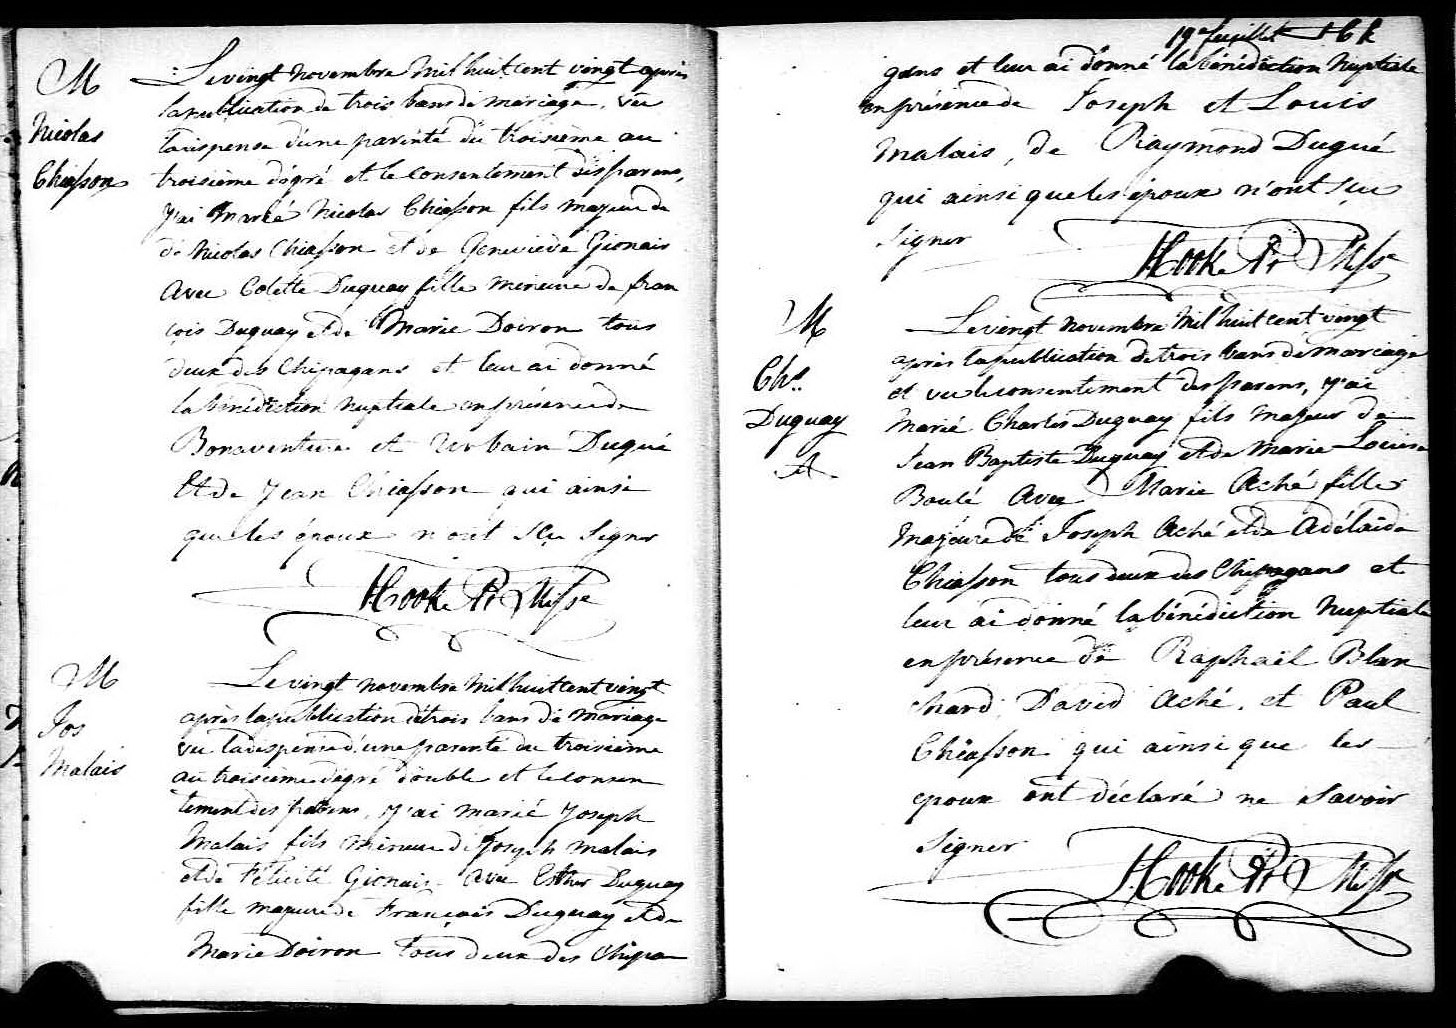 M
Nicolas
Chiasson
Le vingt novembre mil huit cent vingt après
la publication de trois bans de mariage, vu
la dispense d'une parenté du troisième au
troisième dégré et le consentement des parens,
j'ai marié Nicolas Chiasson fils majeur de
de Nicolas Chiasson et de Geneviève Gionais
Avec Colette Duguay fille mineure de fran
çois Duguay et de Marie Doiron tous
deux des Chipagans et leur ai donné
la bénédiction nuptiale en présence de
Bonaventure et Urbain Dugué
Et de Jean Chiasson qui ainsi
que les époux n'ont sçu signer
Hooke Ptr Miss.re
M
Jos
Malais
Le vingt novembre mil huit cent vingt
après la publication de trois bans de mariage
vu la dispense d'une parenté du troisième
au troisième dégré double et le consen
tement des parens, j'ai marié Joseph
Malais fils mineur de Joseph Malais
et de Félicité Gionais avec Esther Duguay
fille majeure de François Duguay et de
Marie Doiron tous deux des Chipa
19e feuillet
gans et leur ai donné la bénédiction nuptiale
en présence de Joseph et Louis
Malais, de Raymond Dugué
qui ainsi que les époux n'ont sçu
signer
Hooke Ptr Miss.re
M
Chs.
Duguay
A
Le vingt novembre mil huit cent vingt
après la publication de trois bans de mariage
et vu le consentement des parens, j'ai
marié Charles Duguay fils majeur de
Jean Baptiste Duguay et de Marie Louise
Boulé Avec Marie Aché fille
majeure de Joseph Aché et de Adélaïde
Chiasson tous deux des Chipagans et
leur ai donné la bénédiction nuptiale
en présence de Raphaël Blan
chard, David Aché, et Paul
Chiasson qui ainsi que les
epoux ont déclaré ne savoir
signer
Hooke Ptr Miss.re